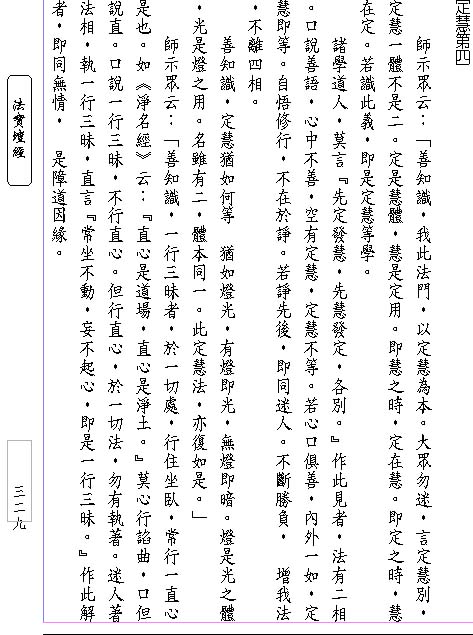 定慧第四
師示眾云：「善知識，我此法門，以定慧為本。大眾勿迷，言定慧別，
定慧一體不是二。定是慧體，慧是定用。即慧之時，定在慧。即定之時，慧
在定。若識此義，即是定慧等學。
諸學道人，莫言『先定發慧，先慧發定，各別。』作此見者，法有二相
。口說善語，心中不善，空有定慧，定慧不等。若心口俱善，內外一如，定
慧即等。自悟修行，不在於諍。若諍先後，即同迷人。不斷勝負， 增我法
，不離四相。
善知識，定慧猶如何等 猶如燈光，有燈即光，無燈即暗。燈是光之體
，光是燈之用。名雖有二，體本同一。此定慧法，亦復如是。」
師示眾云：「善知識，一行三昧者，於一切處，行住坐臥，常行一直心
是也。如《淨名經》云：『直心是道場，直心是淨土。』莫心行諂曲，口但
說直。口說一行三昧，不行直心。但行直心，於一切法，勿有執著。迷人著
法相，執一行三昧，直言『常坐不動，妄不起心，即是一行三昧。』作此解
者，即同無情， 是障道因緣。
法寶壇經
三二九